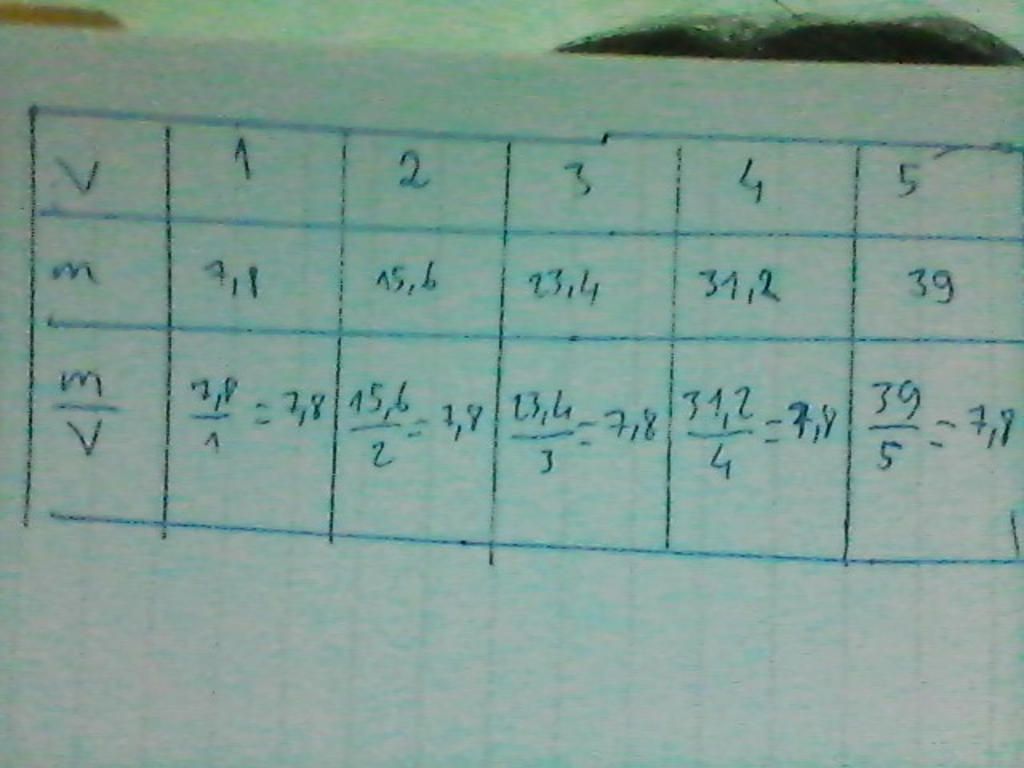 V 1 2 3 4 5
m 7,8 15,6 23,4 31,2 39
m/V 7,8/1 = 7,8 15,6/2 = 7,8 23,4/3 = 7,8 31,2/4 = 7,8 39/5 = 7,8